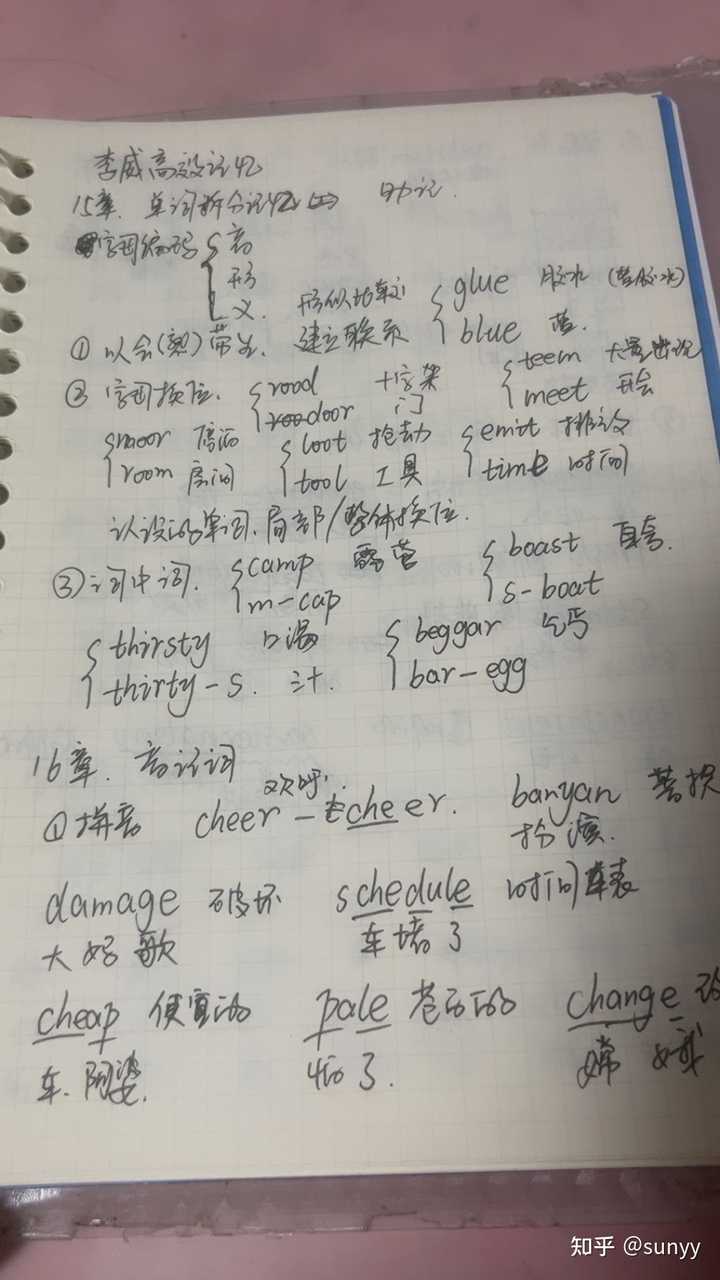 李威高效记忆
15章. 单词拆分记忆 助记.
字母编码 { 音
形
义. 形似比较 { glue 胶水 (蓝胶水)
① 以会(熟)带生. 建立联系 blue 蓝.
② 字母换位. { rood 十字架 { teem 大量出现
door 门 meet 开会
{ moor 停泊 { loot 抢劫 { emit 排放
room 房间 tool 工具 time 时间
认识的单词.局部/整体换位.
③ 词中词. { camp 露营 { boast 自夸.
m-cap s-boat
{ thirsty 口渴 { beggar 乞丐
thirty-s. 三十. bar-egg
16章. 音记词
① 拼音 cheer 欢呼 - cheer. banyan
扮演.
damage 破坏 schedule 时间表
大妈歌 车堵了
cheap 便宜的 pale 苍白的 change
车.阿婆. 怕了. 嫦娥
知乎 @sunyy